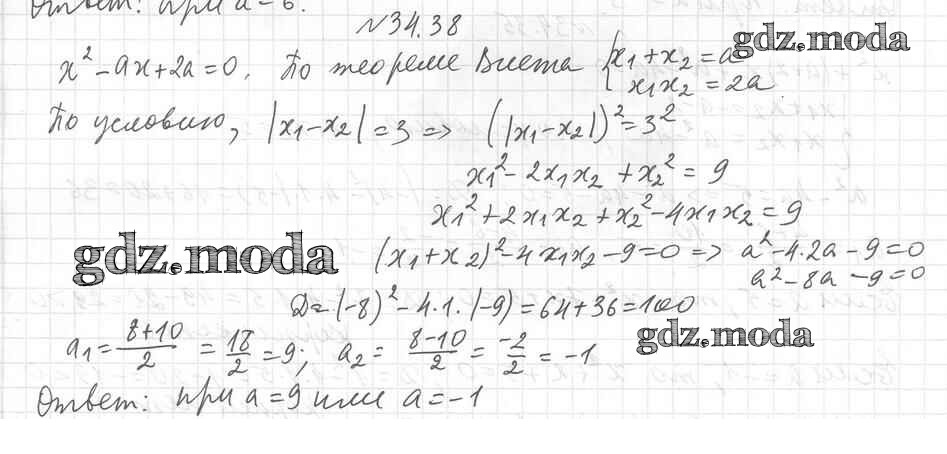 Ответ: при a = 6.
№34.38
gdz.moda
x² - ax + 2a = 0. По теореме Виета { x₁ + x₂ = a
x₁x₂ = 2a
По условию, |x₁ - x₂| = 3 => (|x₁ - x₂|)² = 3²
x₁² - 2x₁x₂ + x₂² = 9
x₁² + 2x₁x₂ + x₂² - 4x₁x₂ = 9
gdz.moda
(x₁ + x₂)² - 4x₁x₂ - 9 = 0 => a² - 4·2a - 9 = 0
a² - 8a - 9 = 0
D = (-8)² - 4·1·(-9) = 64 + 36 = 100
gdz.moda
a₁ = (8+10)/2 = 18/2 = 9; a₂ = (8-10)/2 = -2/2 = -1
Ответ: при a = 9 или a = -1